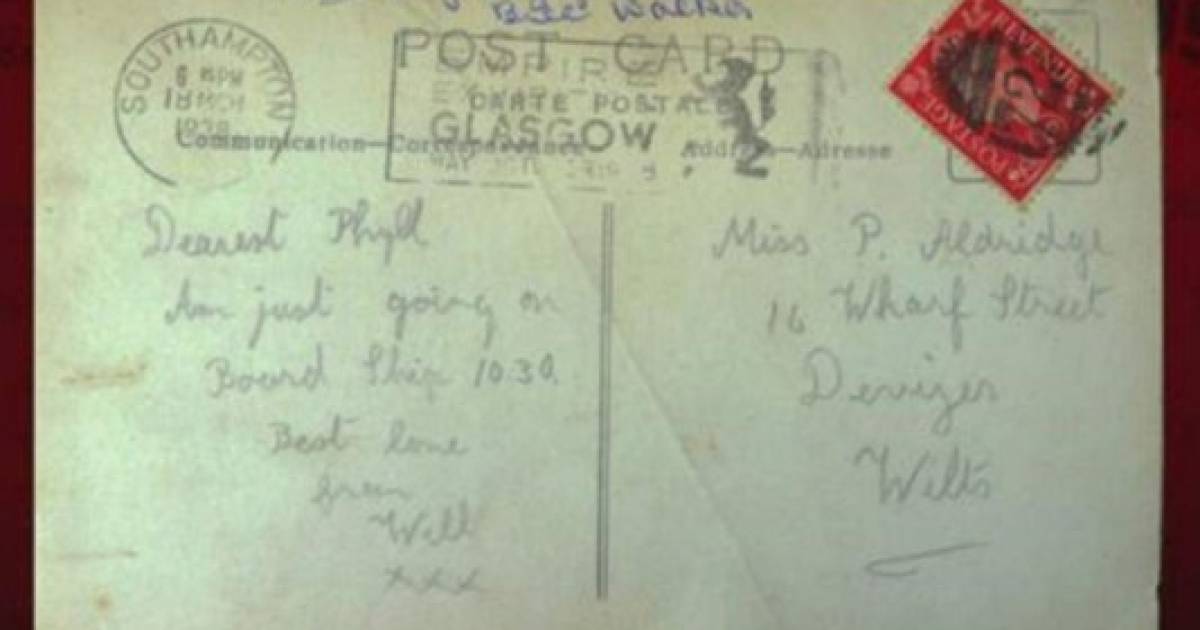 Walker
POST CARD
SOUTHAMPTON
6 PM
18 MCH
1938
EMPIRE
CARTE POSTALE
GLASGOW
Communication—Correspondance
Address—Adresse
MAY
REVENUE
POSTAGE
Dearest Phyll
Am just going on
Board Ship 10.30.
Best love
from
Will
xxx
Miss P. Aldridge
16 Wharf Street
Devizes
Wilts